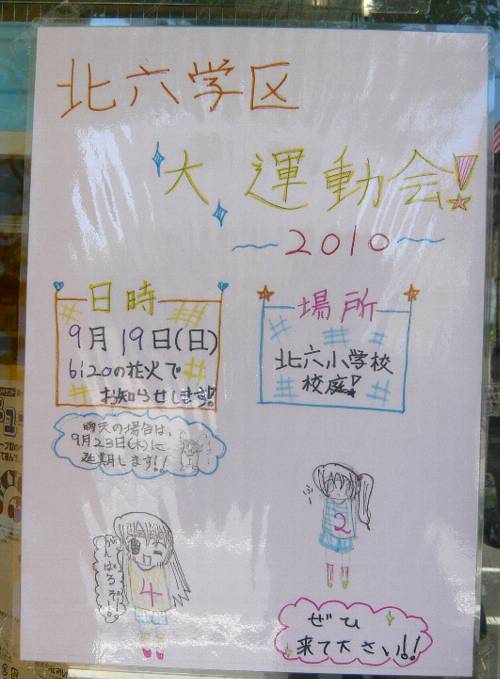 北六学区
大運動会!
〜2010〜
日時
9月19日(日)
6:20の花火で
お知らせします!!
雨天の場合は、
9月23日(木)に
延期します!!
場所
北六小学校
校庭!
2
4
がんばるぞー
ぜひ
来て下さい!!